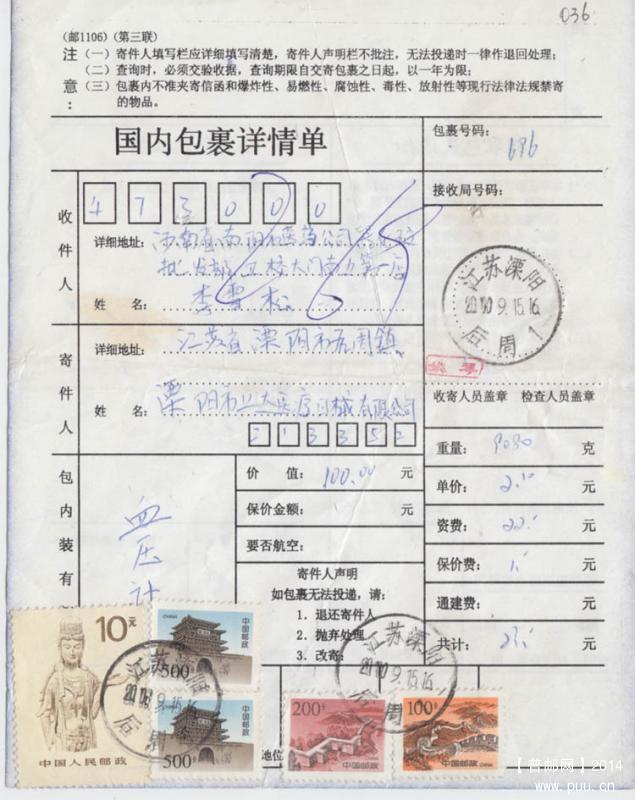 036
(邮1106)(第三联)
注 (一)寄件人填写栏应详细填写清楚，寄件人声明栏不批注，无法投递时一律作退回处理；
(二)查询时，必须交验收据，查询期限自交寄包裹之日起，以一年为限；
意： (三)包裹内不准夹寄信函和爆炸性、易燃性、腐蚀性、毒性、放射性等现行法律法规禁寄
的物品。
国内包裹详情单
包裹号码：
696
接收局号码：
收件人
473000
详细地址：河南省南阳市医药公司
批发部卫校大门南第一店
姓 名：李雪松
江苏溧阳
2000.9.15.16
后周 1
寄件人
详细地址：江苏省溧阳市后周镇
姓 名：溧阳市医疗器械有限公司
213352
收寄人员盖章 检查人员盖章
重量： 克
单价： 元
资费： 元
保价费： 元
通建费： 元
共计： 元
包内装有
血压计
价 值：100.00 元
保价金额： 元
要否航空：
寄件人声明
如包裹无法投递，请：
1．退还寄件人
2．抛弃处理
3．改寄：
地位
10元
中国人民邮政
CHINA
中国邮政
500
中国邮政
500
江苏溧阳
2000.9.15.16
后周
江苏溧阳
2000.9.15.16
后周
200
中国邮政
100
中国邮政 CHINA
【普邮网】2014
www.puu.cn